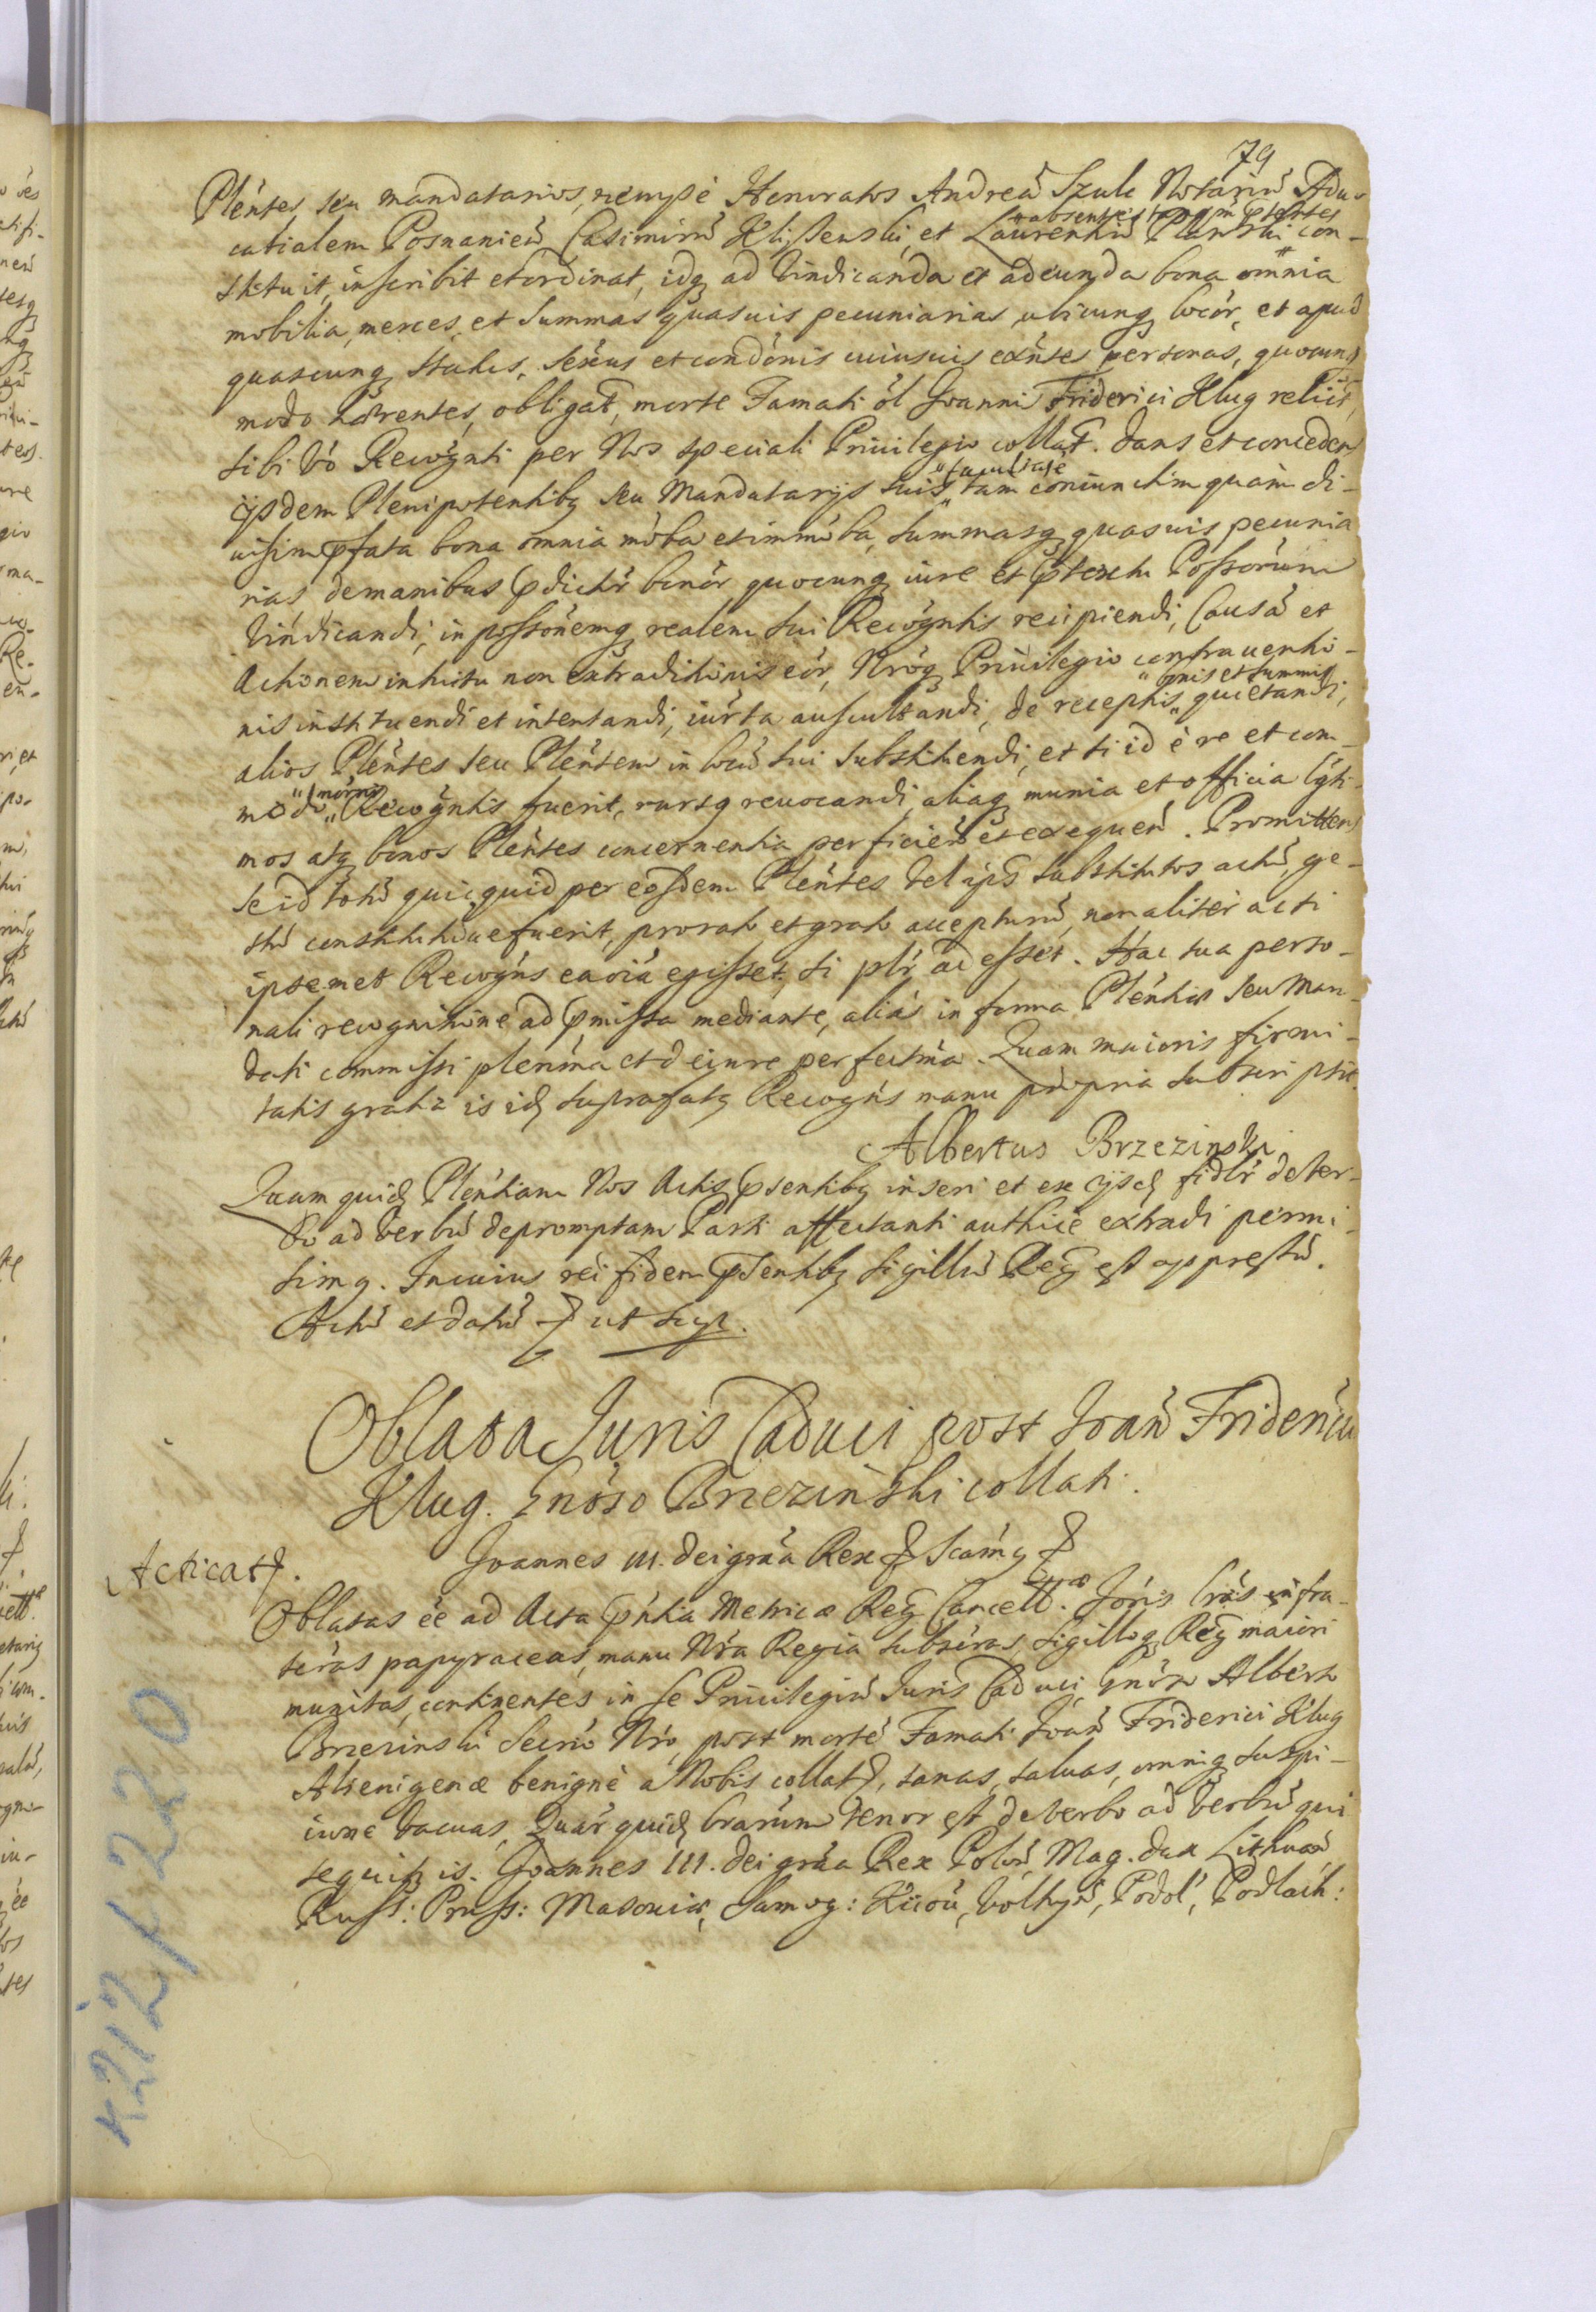 79
Plentes, seu mandatarios, nempè Honoratos Andreã Szulc Notariũ Aduo-
catialem Posnanieñ Casimirũ Kliszewski, et Laurentiũ Planski "absentes tanqm pñtes" con-
stituit, inscribit et ordinat, idq ad Vindicanda et adeunda bona omnia
mobilia, merces, et summas quasuis pecuniarias, ubicunq locor, et apud
quascunq status, sexus et condõnis cuiusuis exñtes personas, quocunq
modo hærentes, obligat, morte Famati ol Joanni Friderici Klug relict,
sibi vo Recognti per Nos speciali Priuilegio collat. Dans et conceden
ijsdem Plenipotentibq seu Mandatarijs suis "facultate" tam coniunctim quàm di-
uisim pfata bona omnia moba et immoba, summasq quasuis pecunia
rias, de manibus pdictr bonor quocunq iure et ptextu Possorum
Vindicandi, in possonemq realem sui Recogntis recipiendi, Causã et
Actionem intuitu non extraditionis eor, Nroq Priuilegio contrauentio-
nis instituendi et intentandi, iurta auscultandi, de receptis "bonis et summis" quietandi,
alios Plentes seu Plentem in locũ sui substituendi, et si id è re et com-
modo Recogntis fuerit, rursq reuocandi, aliaq munia et officia lgti-
mos atq bonos Plentes concernentia perficieñ et exequeñ. Promittens
se id totũ quicquid per eosdem Plentes vel ips substitutos actũ, ge-
stũ constitutũue fuerit, pro rato et grato accepturũ, non aliter ac si
ipsemet Recogns ea oia egisset, si plr adesset. Hac sua perso-
nali recognitione ad pmissa mediante, aliàs in forma Plentiæ seu Man-
dati commissi plenima et de iure perfectma. Quam maioris firmi-
tatis gratia is id suprafatq Recogns manu propria subscripsit.
Albertus Brzezinski
Quam quid Plentiam Nos Actis psentibq inseri et ex ijsd fidlr de Ver-
bo ad Verbũ depromptam Parti affectanti authice extradi permi-
simq. In cuius rei fidem psentibq sigillũ Reg est appressũ.
Actũ et datũ ut supr.
Oblata Juris Caduci post Joañ Fridericũ
Klug. Gnõso Brzezinski collati.
Acticat.
Joannes III. Dei grãa Rex Scimq
Oblatas ee ad Acta pñtia Metricæ Reg Cancellræ Joris lras infra-
scras papyraceas, manu Nra Regia subscras, sigilloq Reg maiori
munitas, continentes in se Priuilegiũ Juris Caduci, Gnoso Alberto
Brzezinski Secrio Nro, post mortẽ Famati Joañ Friderici Klug
Alienigenæ benignè a Nobis collat, sanas, saluas, omniq suspi-
cione vacuas, Quar quid lrarum tenor est de verbo ad Verbũ qui
sequitr is. Joannes III. Dei grãa Rex Poloñ, Mag. Dux Lithuañ
Russ: Pruss: Masouiæ, Samog: Kiiou, Volhyñ, Podol, Podlach:
K212/220